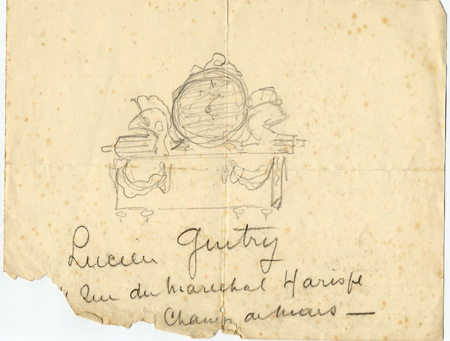 Lucien Guitry
Rue du Marechal Harispe
Champ de Mars —